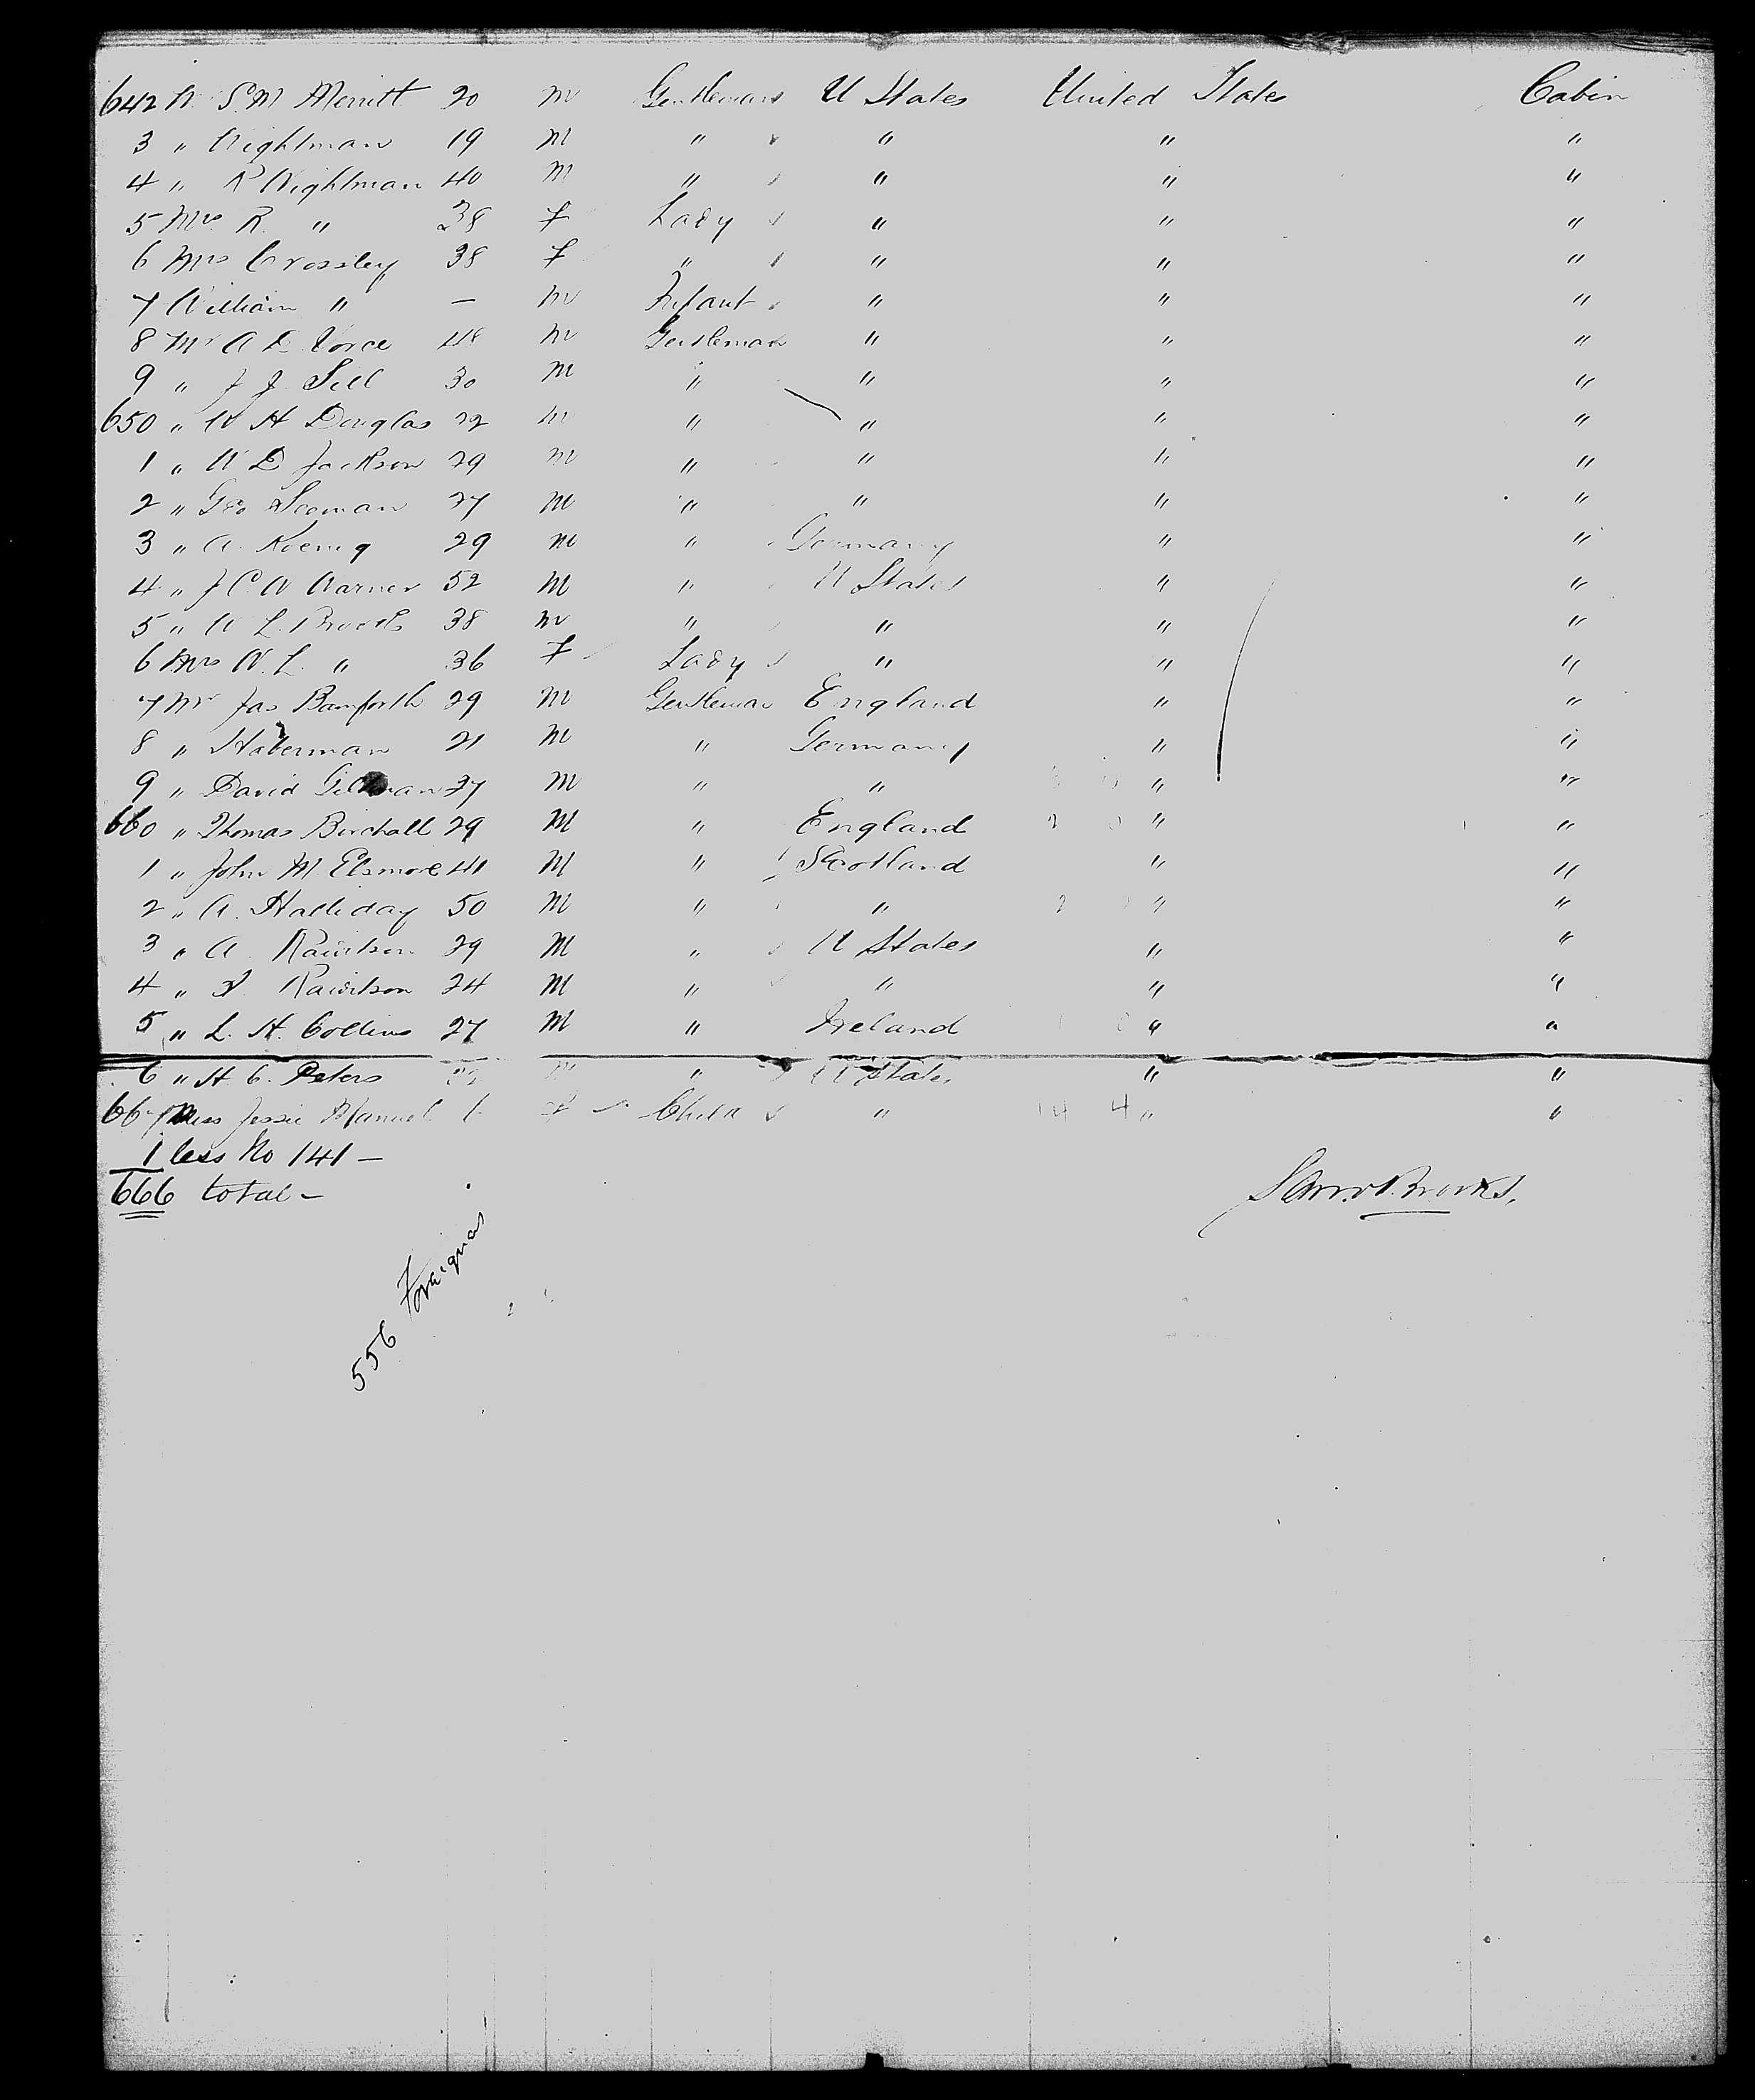 642 Mr S. M. Merritt 20 m Gentleman U States United States Cabin
3 " Wightman 19 m " " " "
4 " R Wightman 40 m " " " "
5 Mrs. R. " 38 f Lady " " "
6 Mrs Crossley 38 f " " " "
7 William " — m Infant " " "
8 Mr A D Vorce 48 m Gentleman " " "
9 " J J. Sill 30 m " " " "
650 " W H Douglas 22 m " " " "
1 " W D Jackson 29 m " " " "
2 " Geo Seeman 27 m " " " "
3 " A. Koenig 29 m " Germany " "
4 " J C. W Warner 52 m " U States " "
5 " W L. Brooks 38 m " " " "
6 Mrs W. L. " 36 f Lady " " "
7 Mr Jas Bamforth 29 m Gentleman England " "
8 " Haberman 21 m " Germany " "
9 " David 27 m " " " "
660 " Thomas Birchall 29 m " England " "
1 " John M. Elsmore 41 m " Scotland " "
2 " A. Halliday 50 m " " " "
3 " A. 29 m " U States " "
4 " 24 m " " " "
5 " L. H. Collins 27 m " Ireland " "
6 " H C. Peters m " U States " "
667 Miss Jessie Manuel f Child " " "
1 less No 141 —
666 total —
Brooks.
556 Foreigners